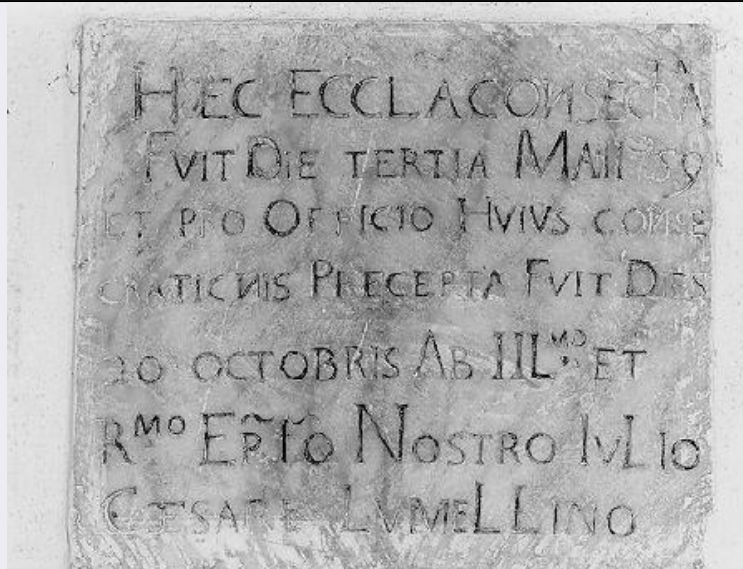 HÆC ECCLA CONSECRA
FVIT DIE TERTIA MAII 1759
ET PRO OFFICIO HVIVS CONSE
CRATIONIS PRECEPTA FVIT DIES
20 OCTOBRIS AB IIL^MO ET
R^MO EP̃T̃O NOSTRO IVLIO
CÆSARE LVMELLINO